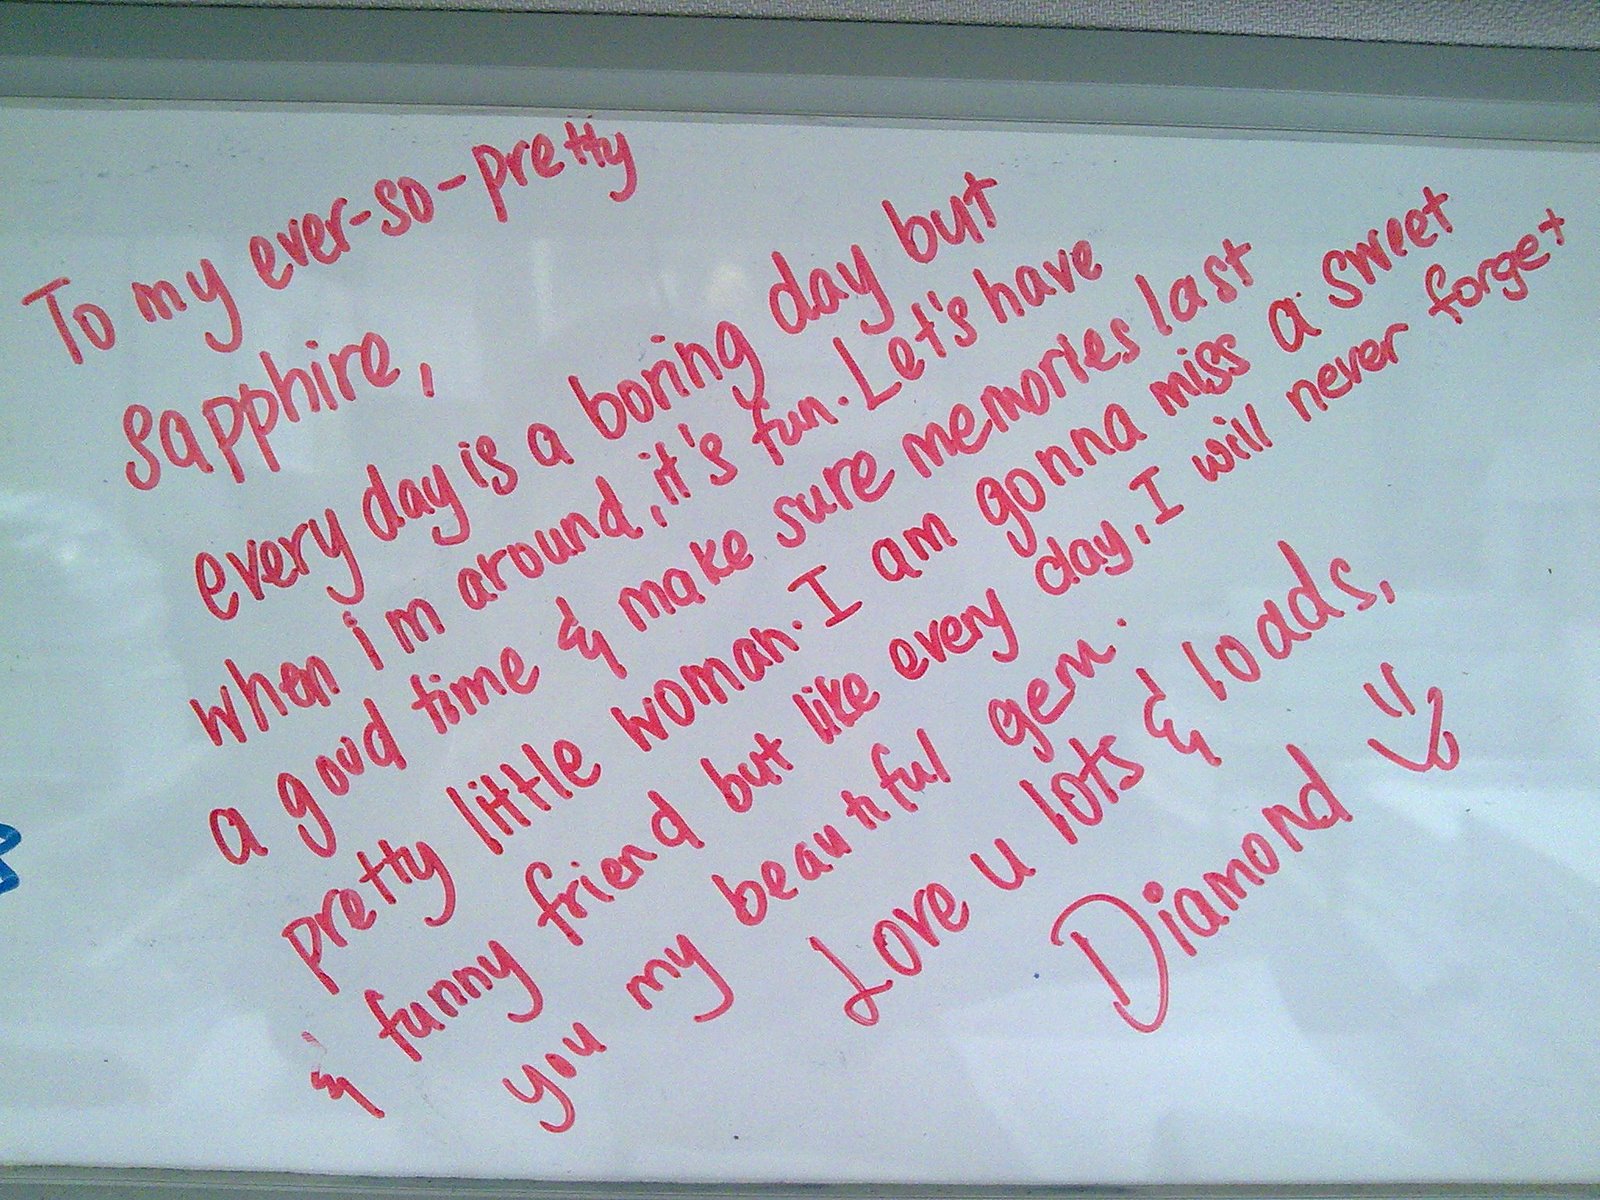 To my ever-so-pretty
sapphire,
every day is a boring day but
when i'm around, it's fun. Let's have
a good time & make sure memories last
pretty little woman. I am gonna miss a sweet
& funny friend but like every day, I will never forget
you my beautiful gem.
Love u lots & loads,
Diamond